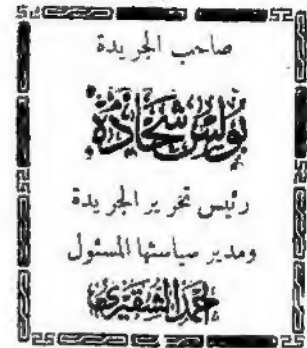 صاحب الجريدة
بولس شحادة
رئيس تحرير الجريدة
ومدير سياستها المسئول
أحمد الشقيري